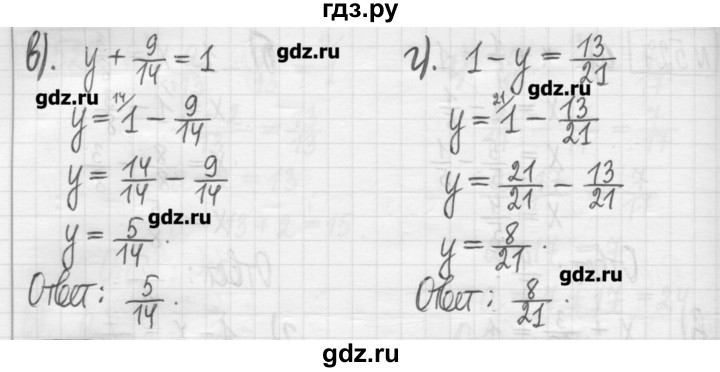 гдз.ру
в). y + 9/14 = 1
gdz.ru
y = ¹⁴/1 − 9/14
gdz.ru
y = 14/14 − 9/14
y = 5/14.
gdz.ru
Ответ: 5/14.
г). 1 − y = 13/21
gdz.ru
y = ²¹/1 − 13/21
y = 21/21 − 13/21
y = 8/21.
gdz.ru
Ответ: 8/21.
gdz.ru